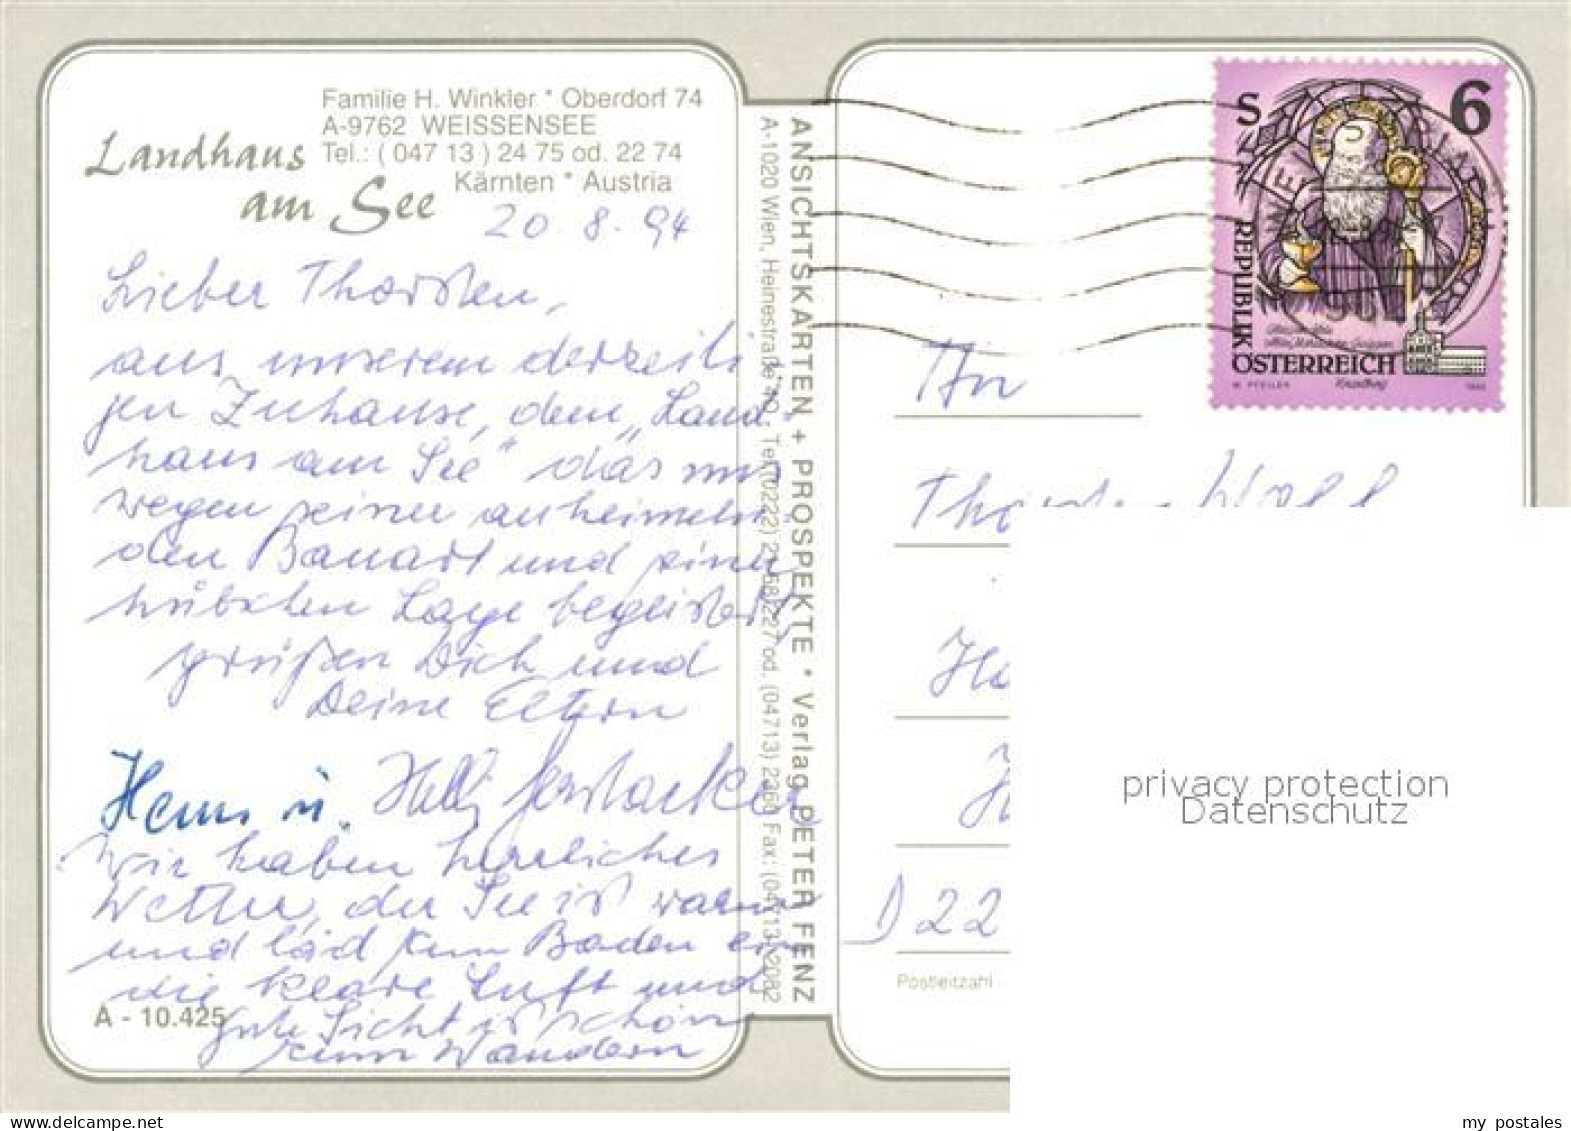 Familie H. Winkler * Oberdorf 74
A-9762 WEISSENSEE
Tel.: ( 047 13 ) 24 75 od. 22 74
Kärnten * Austria
Landhaus
am See
20. 8. 94
Lieber Thorsten,
aus unserem derzeiti
gen Zuhause, dem „Land
haus am See" das uns
wegen seiner anheimeln
den Bauart und seiner
hübschen Lage begeistert
grüßen Dich und
Deine Eltern
Hans u.
Wir haben herrliches
Wetter, der See ist warm
und läd zum Baden ein
die klare Luft und
gute Sicht ist schön
zum Wandern
A - 10.425
ANSICHTSKARTEN + PROSPEKTE * Verlag PETER FENZ
A-1020 Wien, Heinestraße 40, Tel. (0222) 2 58/227 od. (04713) 2360 Fax: (04713) 2082
S 6
REPUBLIK
ÖSTERREICH
W. PFEILER
An
Thorsten
D 22
Postleitzahl
privacy protection
Datenschutz
my postales